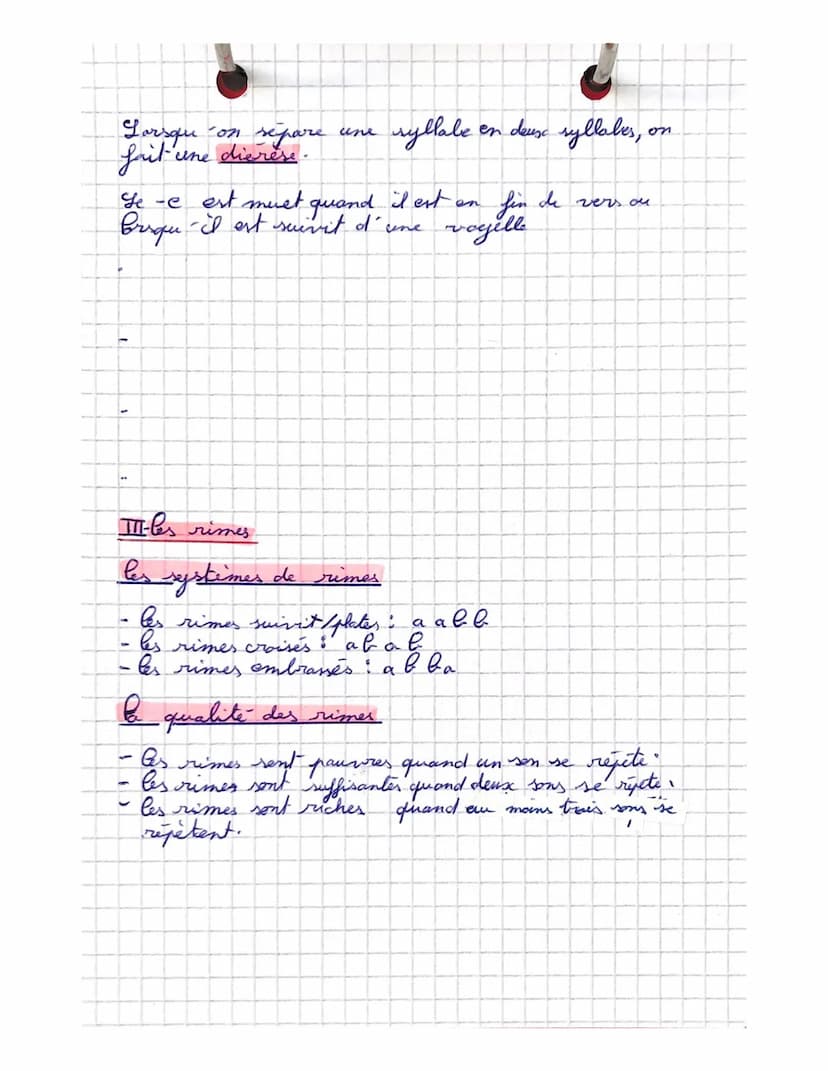 Lorsqu-on sépare une syllabe en deux syllabes, on
fait une dièrèse.
Le -e est muet quand il est en fin de vers ou
lorsqu-il est suivit d'une voyelle
III-les rimes
les systèmes de rimes
- les rimes suivit/plates : a a b b
- les rimes croisés : a b a b
- les rimes embrassés : a b b a
la qualité des rimes
- les rimes sont pauvres quand un son se répète.
- les rimes sont suffisantes quand deux sons se répète.
- les rimes sont riches quand au moins trois sons se
répètent.